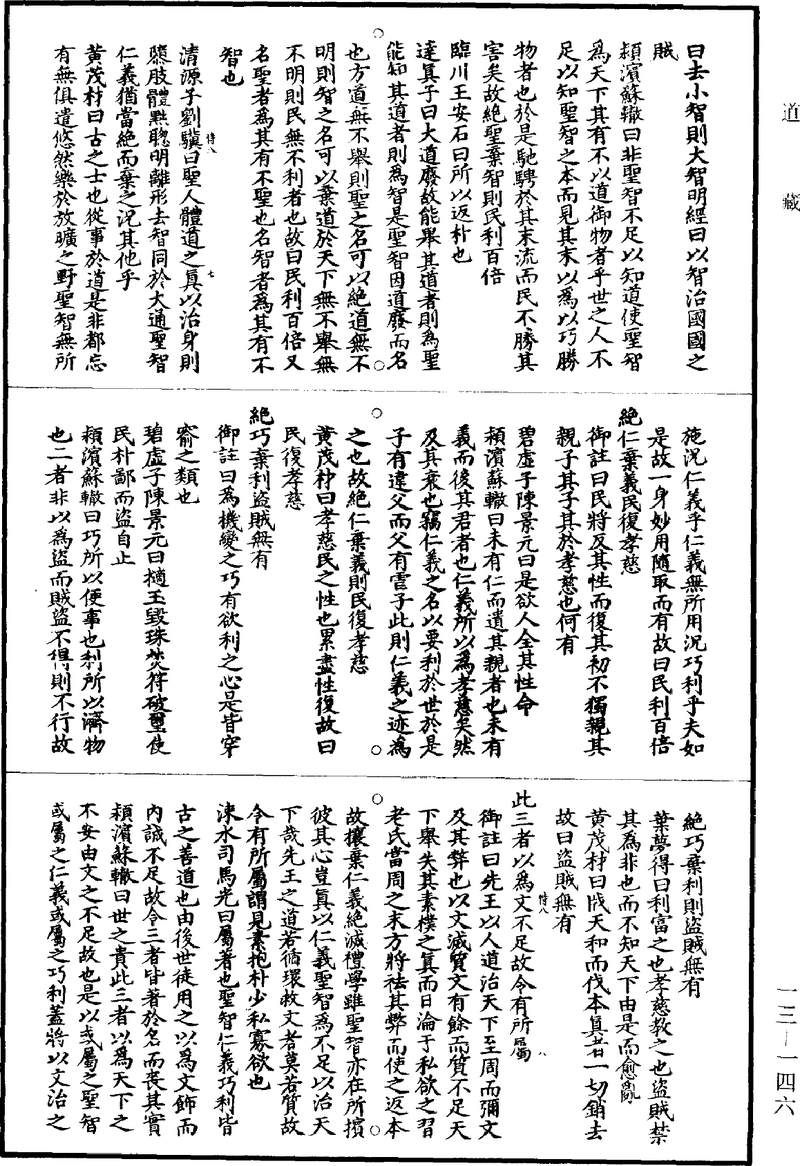 道藏
曰去小智則大智明經曰以智治國國之
賊
潁濱蘇轍曰非聖智不足以知道使聖智
為天下其有不以道御物者乎世之人不
足以知聖智之本而見其末以為以巧勝
物者也於是馳騁於其末流而民不勝其
害矣故絕聖棄智則民利百倍
臨川王安石曰所以返朴也
達真子曰大道廢故能舉其道者則為聖
能知其道者則為智是聖智因道廢而名
也方道無不舉則聖之名可以絕道無不
明則智之名可以棄道於天下無不舉無
不明則民無不利者也故曰民利百倍又
名聖者為其有不聖也名智者為其有不
智也
特八 七
清源子劉驥曰聖人體道之真以治身則
隳肢體黜聰明離形去智同於大通聖智
仁義猶當絕而棄之況其他乎
黃茂材曰古之士也從事於道是非都忘
有無俱遣悠然樂於放曠之野聖智無所
施況仁義乎仁義無所用況巧利乎夫如
是故一身妙用隨取而有故曰民利百倍
絕仁棄義民復孝慈
御註曰民將反其性而復其初不獨親其
親子其子其於孝慈也何有
碧虛子陳景元曰是欲人全其性命
潁濱蘇轍曰未有仁而遺其親者也未有
義而後其君者也仁義所以為孝慈矣然
及其衰也竊仁義之名以要利於世於是
子有違父而父有虐子此則仁義之迹為
之也故絕仁棄義則民復孝慈
黃茂材曰孝慈民之性也累盡性復故曰
民復孝慈
絕巧棄利盜賊無有
御註曰為機變之巧有欲利之心是皆穿
窬之類也
碧虛子陳景元曰擿玉毀珠焚符破璽使
民朴鄙而盜自止
潁濱蘇轍曰巧所以便事也利所以濟物
也二者非以為盜而賊盜不得則不行故
絕巧棄利則盜賊無有
葉夢得曰利富之也孝慈教之也盜賊禁
其為非也而不知天下由是而愈亂
黃茂材曰戕天和而伐本真者一切銷去
故曰盜賊無有
特八 八
此三者以為文不足故令有所屬
御註曰先王以人道治天下至周而彌文
及其弊也以文滅質文有餘而質不足天
下舉失其素樸之真而日淪于私欲之習
老氏當周之末方將祛其弊而使之返本
故攘棄仁義絕滅禮學雖聖智亦在所擯
彼其心豈真以仁義聖智為不足以治天
下哉先王之道若循環救文者莫若質故
令有所屬謂見素抱朴少私寡欲也
涑水司馬光曰屬著也聖智仁義巧利皆
古之善道也由後世徒用之以為文飾而
內誠不足故令三者皆著於名而喪其實
潁濱蘇轍曰世之貴此三者以為天下之
不安由文之不足故也是以或屬之聖智
或屬之仁義或屬之巧利蓋將以文治之
一三—一四六